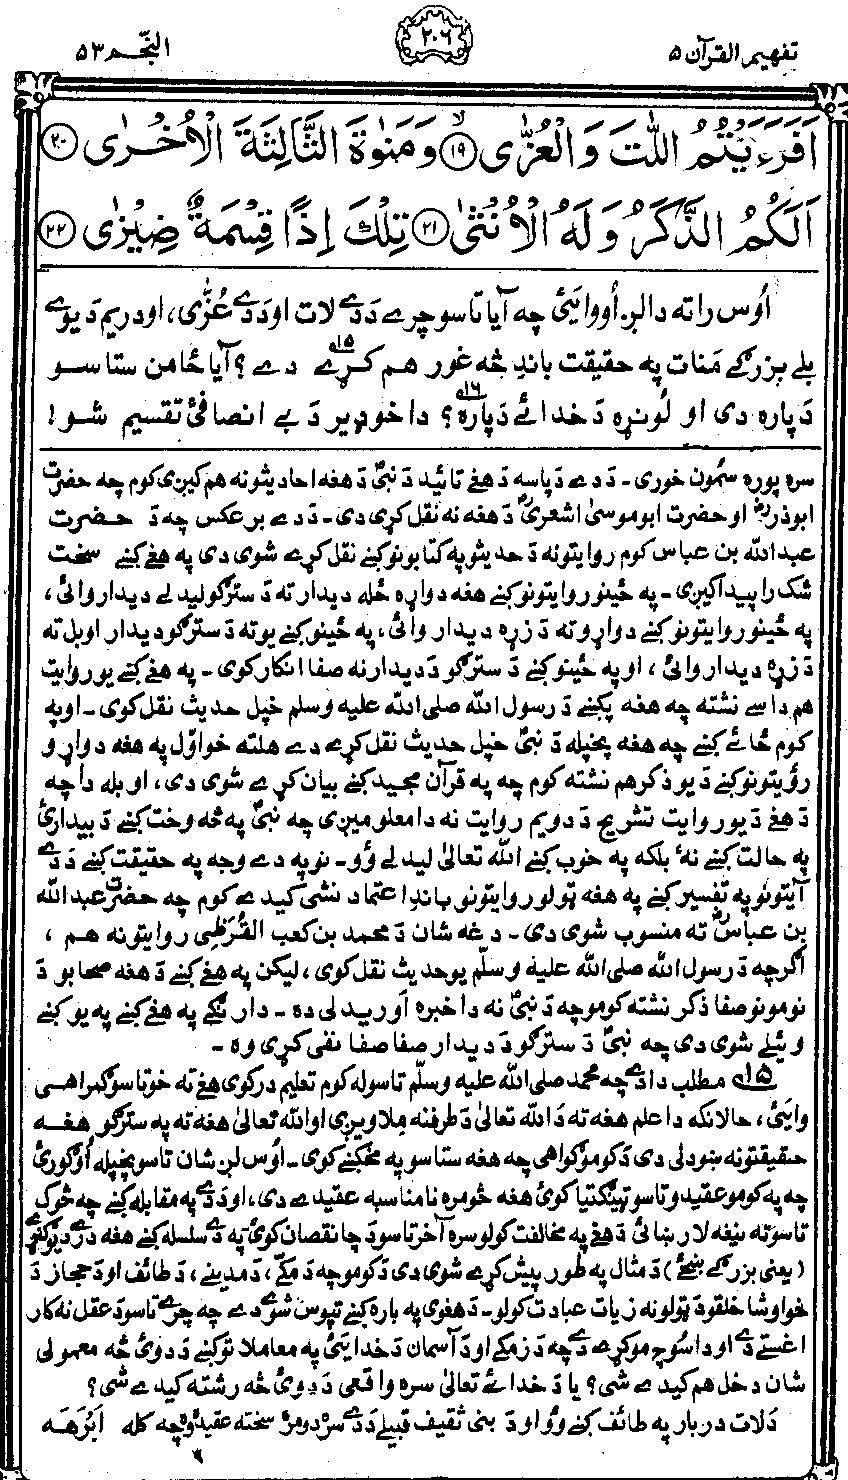 تفهيم القرآن ۵
۲۰۶
النّجم ۵۳
اَفَرَءَيْتُمُ اللّٰتَ وَالْعُزّٰى ۱۹ وَمَنٰوةَ الثَّالِثَةَ الْاُخْرٰى ۲۰
اَلَكُمُ الذَّكَرُ وَلَهُ الْاُنْثٰى ۲۱ تِلْكَ اِذًا قِسْمَةٌ ضِيْزٰى ۲۲
اُوس راته دا لږ اُووایئ چه آیا تاسو چرے دَدے لات اودَدے عُزّٰى، اودریم دَیوے
بلے بزرګے مَنات په حقیقت باندِ څه غور هم کړے ۱۵ دے ؟ آیا ځامن ستاسو
دَپاره دی او لُونړه دَخدائے دَپاره ۱۶؟ دا خو ډیر دَبے انصافئ تقسیم شو!
سره پوره سمون خوری۔ دَدے دَپاسه دَهغے تائید دَ نبیؐ دَهغه احادیثونه هم کیږی کوم چه حضرت
ابوذرؓ او حضرت ابوموسیٰ اشعریؓ دَهغه نه نقل کړی دی۔ دَدے برعکس چه دَ حضرت
عبدالله بن عباس کوم روایتونه دَحدیثو په کتابونو کښے نقل کړے شوی دی په هغے کښے سخت
شک راپیدا کیږی۔ په ځینو روایتونو کښے هغه دواړه ځله دیدار ته دَسترګو لیدلے دیدار وائی،
په ځینو روایتونو کښے دواړو ته دَ زړه دیدار وائی، په ځینو کښے یو ته دَسترګو دیدار او بل ته
دَزړه دیدار وائی، او په ځینو کښے دَسترګو دَدیدار نه صفا انکار کوی۔ په هغے کښے یو روایت
هم داسے نشته چه هغه پکښے دَرسول الله صلی الله علیه وسلم خپل حدیث نقل کوی۔ اوپه
کوم ځائے کښے چه هغه پخپله دَ نبیؐ خپل حدیث نقل کړے دے هلته خو اوّل په هغه دواړو
رؤیتونو کښے دَیو ذکر هم نشته کوم چه په قرآن مجید کښے بیان کړے شوی دی، او بله دا چه
دَهغے دَیو روایت تشریح دَدویم روایت نه دا معلومیږی چه نبیؐ په څه وخت کښے دَبیدارئ
په حالت کښے نه بلکه په خوب کښے الله تعالیٰ لیدلے وُو۔ نوپه دے وجه په حقیقت کښے دَدے
آیتونو په تفسیر کښے په هغه ټولو روایتونو باندِ اعتماد نشی کیدے کوم چه حضرت عبدالله
بن عباسؓ ته منسوب شوی دی۔ دغه شان دَمحمد بن کعب القُرَظی روایتونه هم،
اګرچه دَرسول الله صلی الله علیه وسلّم یوحدیث نقل کوی، لیکن په هغے کښے دَهغه صحابو دَ
نومونو صفا ذکر نشته کومو چه دَنبیؐ نه دا خبره آوریدلی ده۔ دارنګے په هغے کښے په یو کښے
وئیلے شوی دی چه نبیؐ دَسترګو دَدیدار صفا صفا نفی کړی وه۔
۱۵ مطلب دادے چه محمد صلی الله علیه وسلّم تاسوله کوم تعلیم درکوی هغے ته خو تاسو ګمراهی
وایئ، حالانکه دا علم هغه ته دَالله تعالیٰ دَطرفنه ملاویږی او الله تعالیٰ هغه ته په سترګو هغه
حقیقتونه ښودلی دی دَکومو ګواهی چه هغه ستاسو په مخکښے کوی۔ اوس لږ شان تاسو پخپله اُوګورئ
چه په کومو عقیدو تاسو ټینګتیا کوئ هغه څومره نامناسبه عقیدے دی، او دَدے په مقابله کښے چه څوک
تاسو ته نیغه لار ښائی دَهغے په مخالفت کولو سره آخر تاسو دَچا نقصان کوئ۔ په دے سلسله کښے هغه
(یعنی بزرګے ښځے) دَمثال په طور پیش کړے شوی دی دَکومو چه دَمکّے، دَمدینے، دَطائف او دَحجاز دَ
خواوشا خلقو دَټولونه زیات عبادت کولو۔ دَهغوی په باره کښے تپوس شوے دے چه چرے تاسو دَعقل نه کار
اغستے دے او دا سوچ مو کړے دے چه دَزمکے او دَآسمان دَخدایئ په معاملاتو کښے دَدوئ څه معمولی
شان دخل هم کیدے شی؟ یا دَخدائے تعالیٰ سره واقعی دَدوئ څه رشته کیدے شی؟
دَلات دربار په طائف کښے وُو او دَبنی ثقیف قبیلے دَدے سره دومره سخته عقیده وه چه کله اَبْرَهه